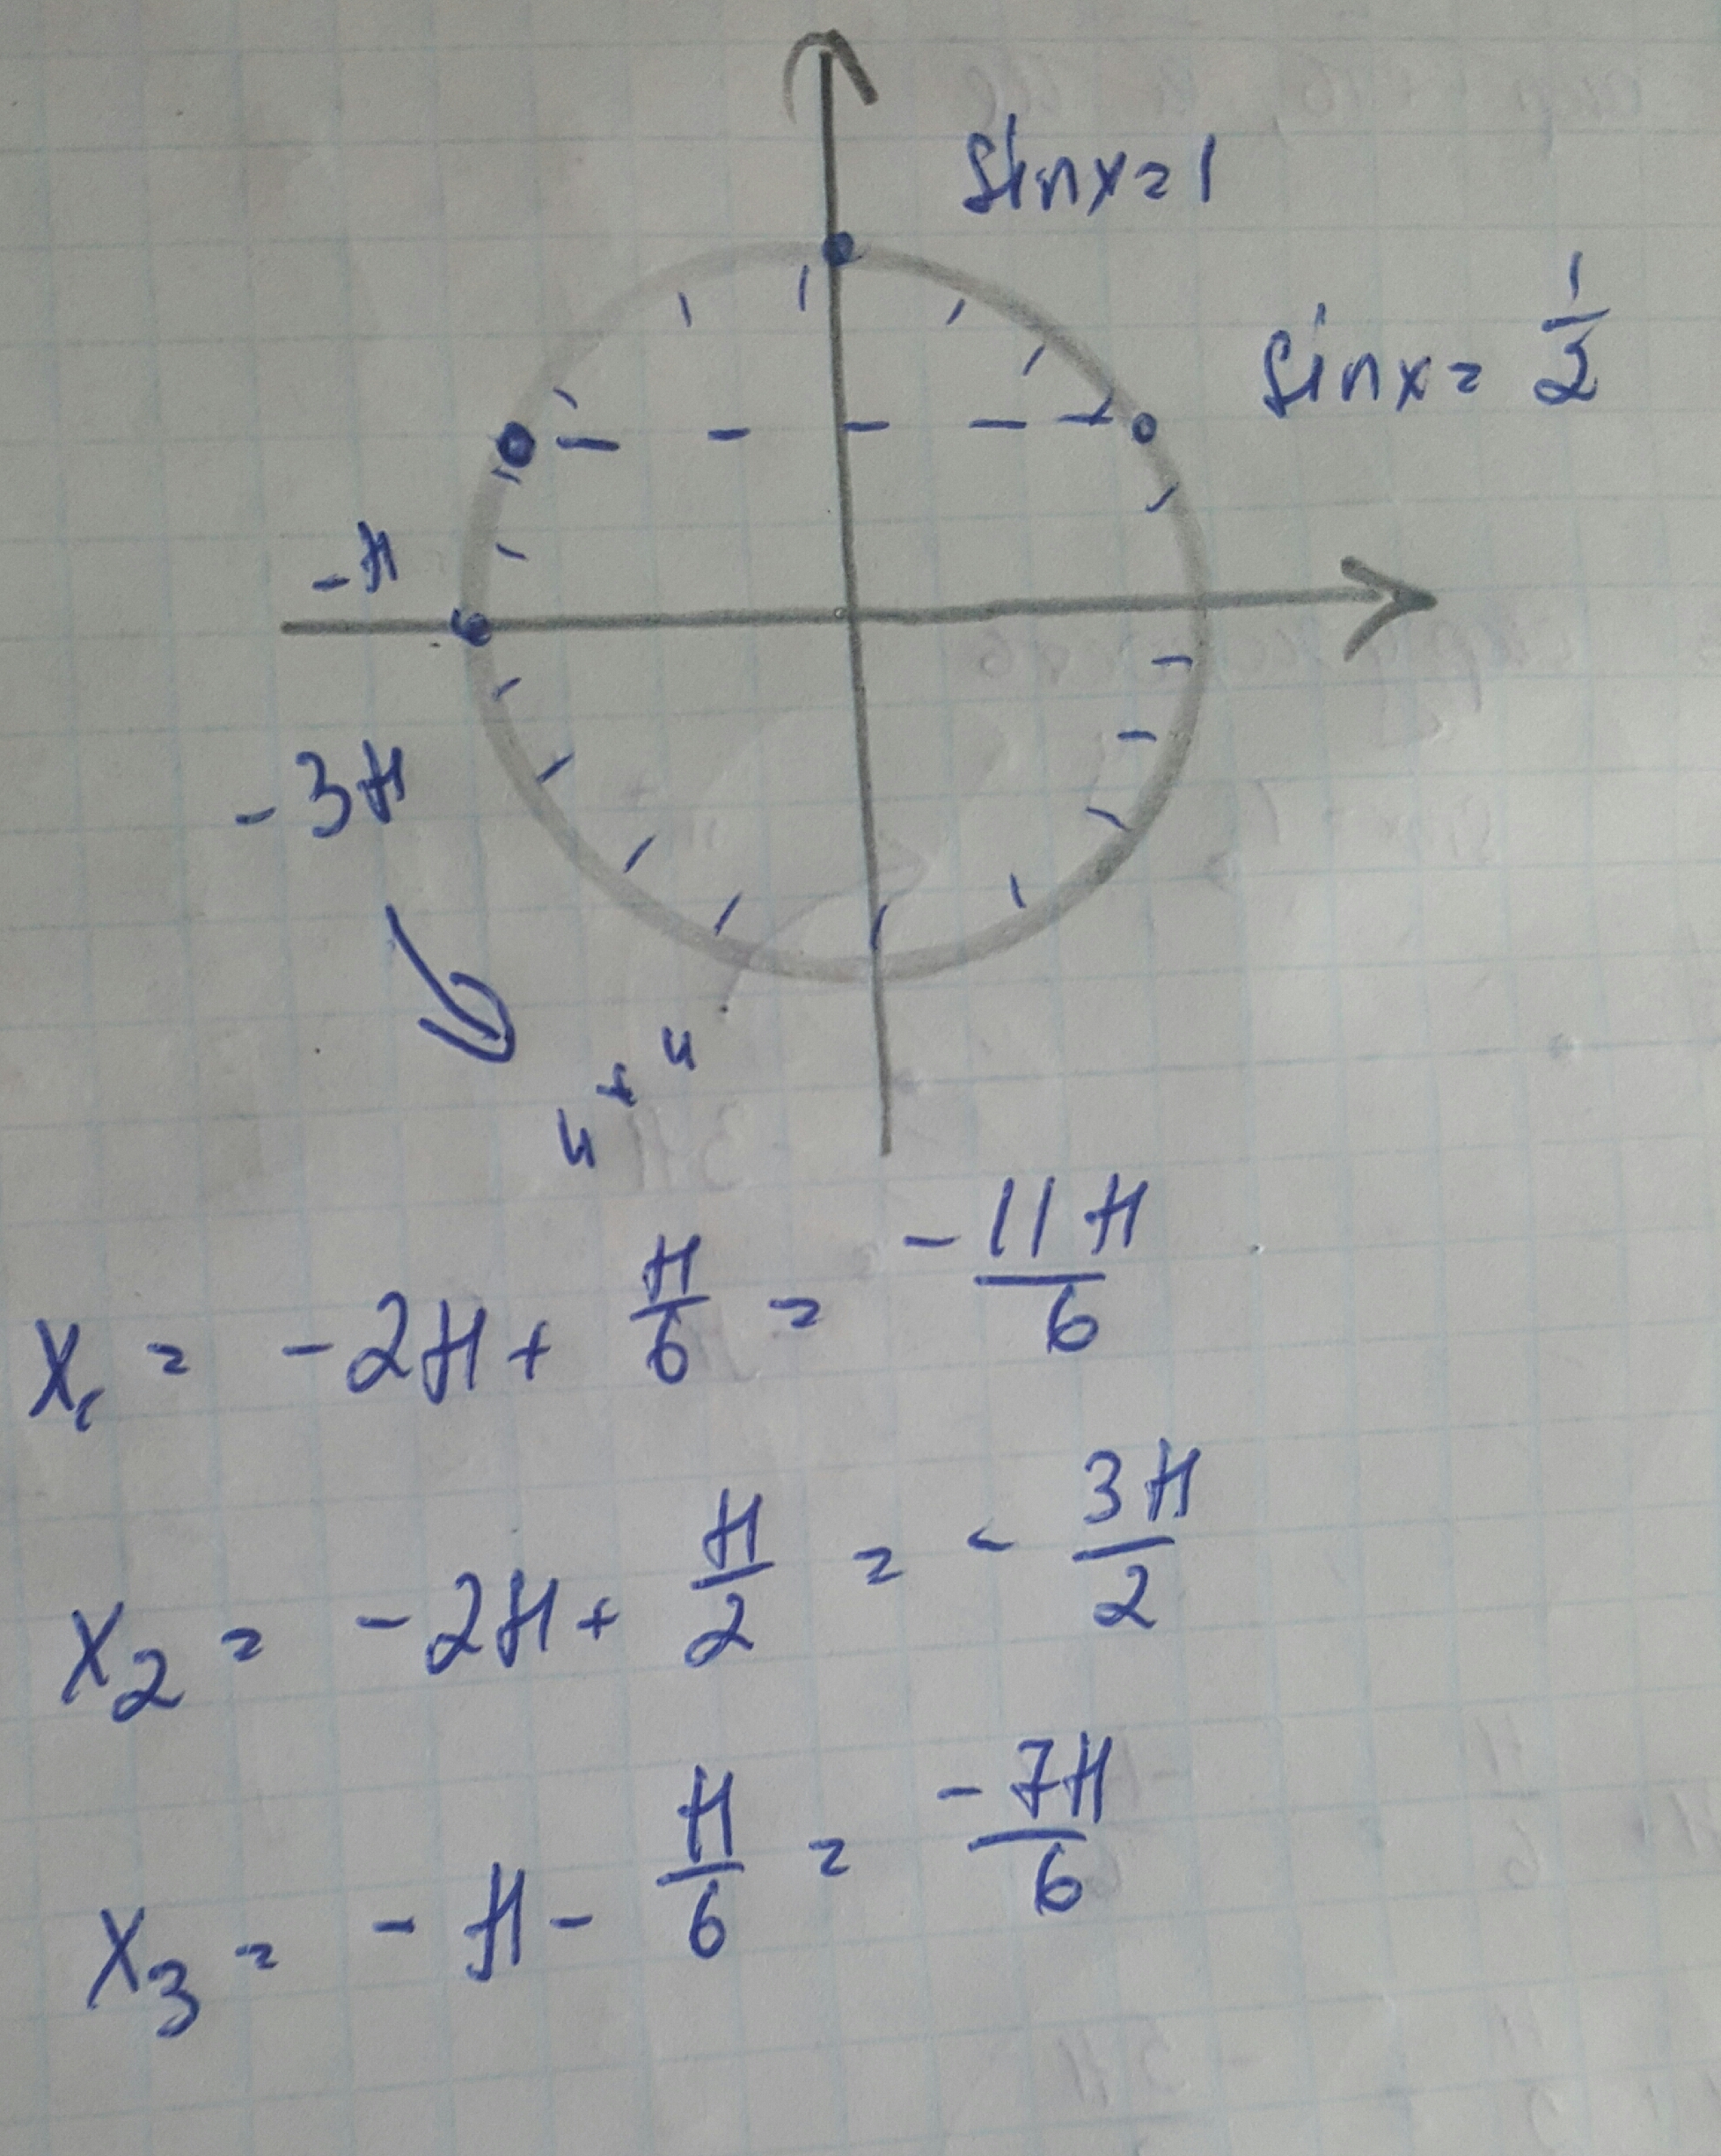 sinx=1
sinx= 1/2
-π
-3π
"+"
x₁ = -2π + π/6 = -11π/6
x₂ = -2π + π/2 = -3π/2
x₃ = -π - π/6 = -7π/6